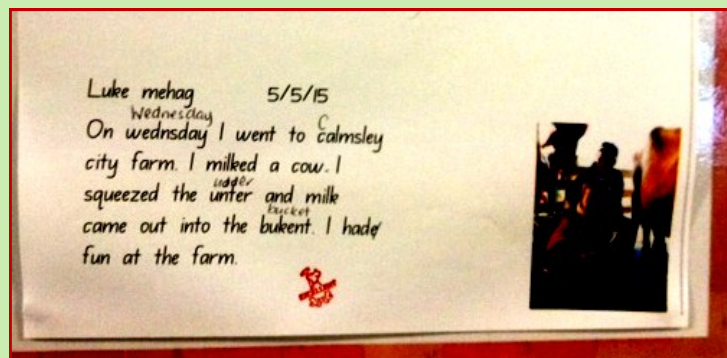 Luke mehag 5/5/15
Wednesday
On wednsday I went to calmsley
C
city farm. I milked a cow. I
udder
squeezed the unter and milk
bucket
came out into the bukent. I hade
fun at the farm.